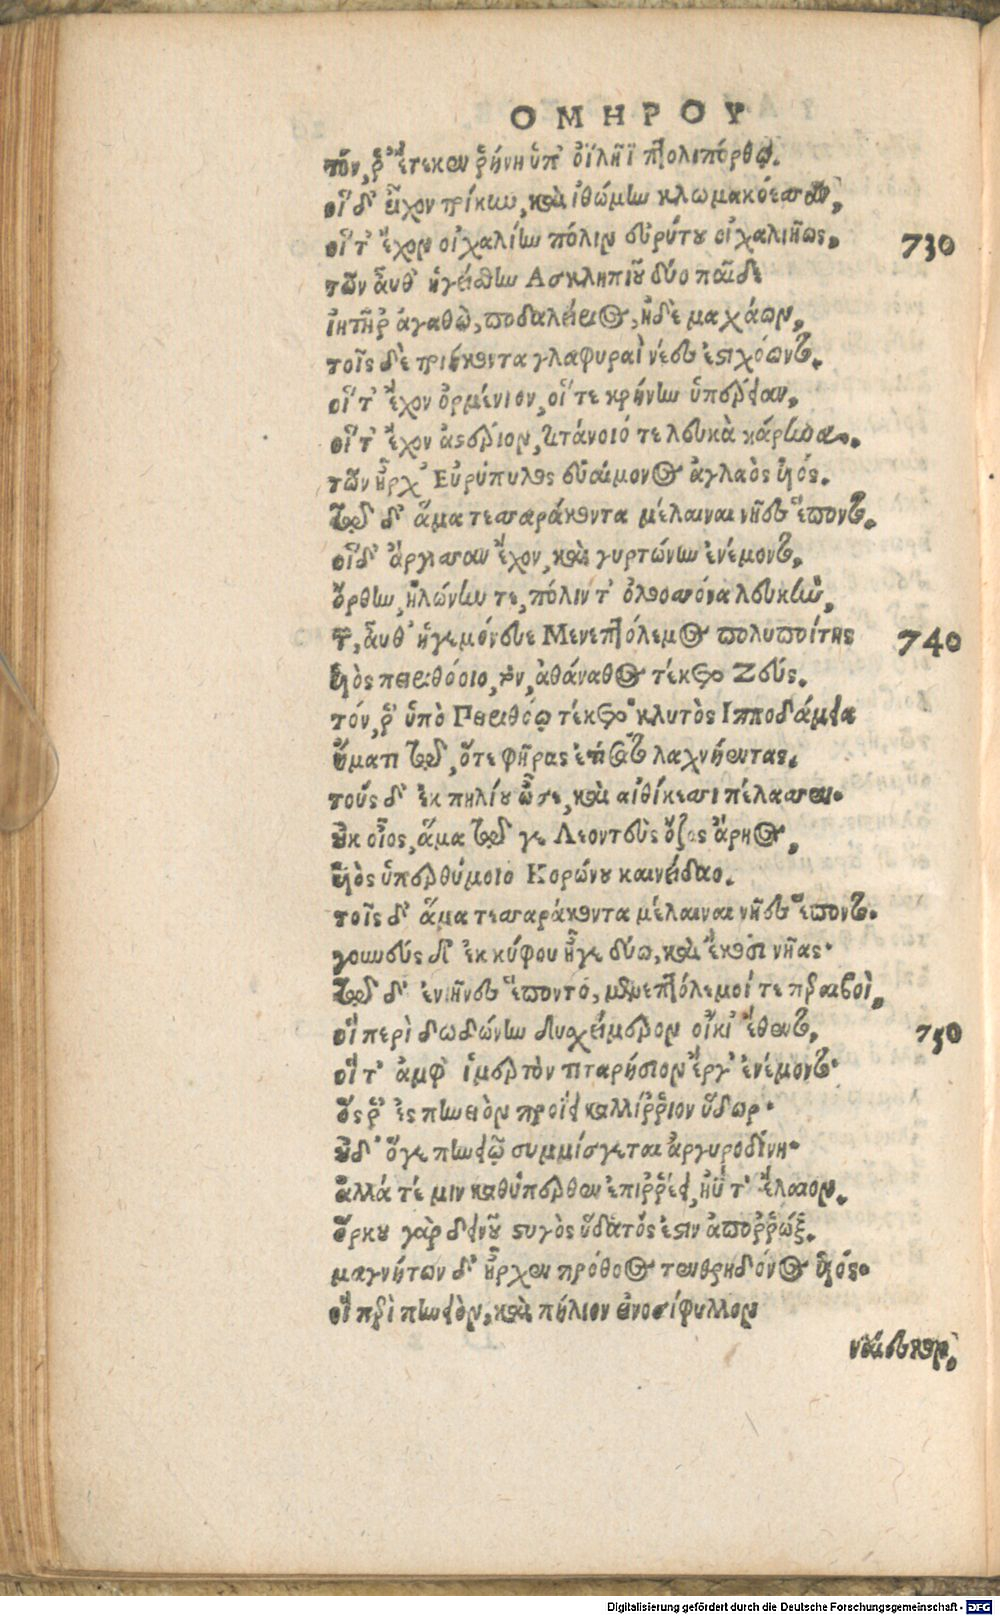 ΟΜΗΡΟΥ
τόν, ῥ' ἔτεκεν ῥήνη ὑπ' ὀϊλῆϊ πτολιπόρθῳ.
οἳ δ' εἶχον τρίκην, καὶ ἰθώμην κλωμακόεσσαν,
οἵ τ' ἔχον οἰχαλίην πόλιν εὐρύτου οἰχαλιῆος, 730
τῶν αὖθ' ἡγείσθην Ασκληπιοῦ δύο παῖδε
ἰητῆρ' ἀγαθὼ, ποδαλείριος, ἠδὲ μαχάων,
τοῖς δὲ τριήκοντα γλαφυραὶ νέες ἐστιχόωντο.
οἵ τ' ἔχον ὀρμένιον, οἵ τε κρήνην ὑπέρειαν,
οἵ τ' ἔχον ἀστέριον, τιτάνοιό τε λευκὰ κάρηνα.
τῶν ἦρχ' Εὐρύπυλος εὐαίμονος ἀγλαὸς υἱός.
τῷ δ' ἅμα τεσσαράκοντα μέλαιναι νῆες ἕποντο.
οἳ δ' ἄργισσαν ἔχον, καὶ γυρτώνην ἐνέμοντο,
ὄρθην, ἠλώνην τε, πόλιν τ' ὀλοοσσόνα λευκὴν,
τῶν, αὖθ' ἡγεμόνευε Μενεπτόλεμος πολυποίτης 740
υἱὸς πειριθόοιο, τὸν, ἀθάνατος τέκετο Ζεύς.
τόν, ῥ' ὑπὸ Πειριθόῳ τέκετο κλυτὸς Ιπποδάμεια
ἤματι τῷ, ὅτε φῆρας ἐτίσατο λαχνήεντας.
τοὺς δ' ἐκ πηλίου ὦσε, καὶ αἰθίκεσσι πέλασσεν.
οὐκ οἶος, ἅμα τῷ γε Λεοντεὺς ὄζος ἄρηος,
υἱὸς ὑπερθύμοιο Κορώνου καινείδαο.
τοῖς δ' ἅμα τεσσαράκοντα μέλαιναι νῆες ἕποντο.
γουνεύς δ' ἐκ κύφου ἦγε δύω, καὶ εἴκοσι νῆας·
τῷ δ' ἐνιῆνες ἕποντό, μενεπτόλεμοί τε περαιβοὶ,
οἳ περὶ δωδώνην δυσχείμερον οἰκί' ἔθεντο, 750
οἵ τ' ἀμφ' ἱμερτὸν τιταρήσιον ἔργ' ἐνέμοντο·
ὅς ῥ' ἐς πηνειὸν προΐει καλλίῤῥοον ὕδωρ·
οὐδ' ὅγε πηνειῷ συμμίσγεται ἀργυροδίνη·
ἀλλά τέ μιν καθύπερθεν ἐπιῤῥέει, ἠΰ τ' ἔλαιον.
ὅρκου γὰρ δεινοῦ στυγὸς ὕδατός ἐστιν ἀποῤῥώξ.
μαγνήτων δ' ἦρχεν πρόθοος τενθρηδόνος υἱός·
οἳ περὶ πηνειὸν, καὶ πήλιον εἰνοσίφυλλον
ναίεσκον,